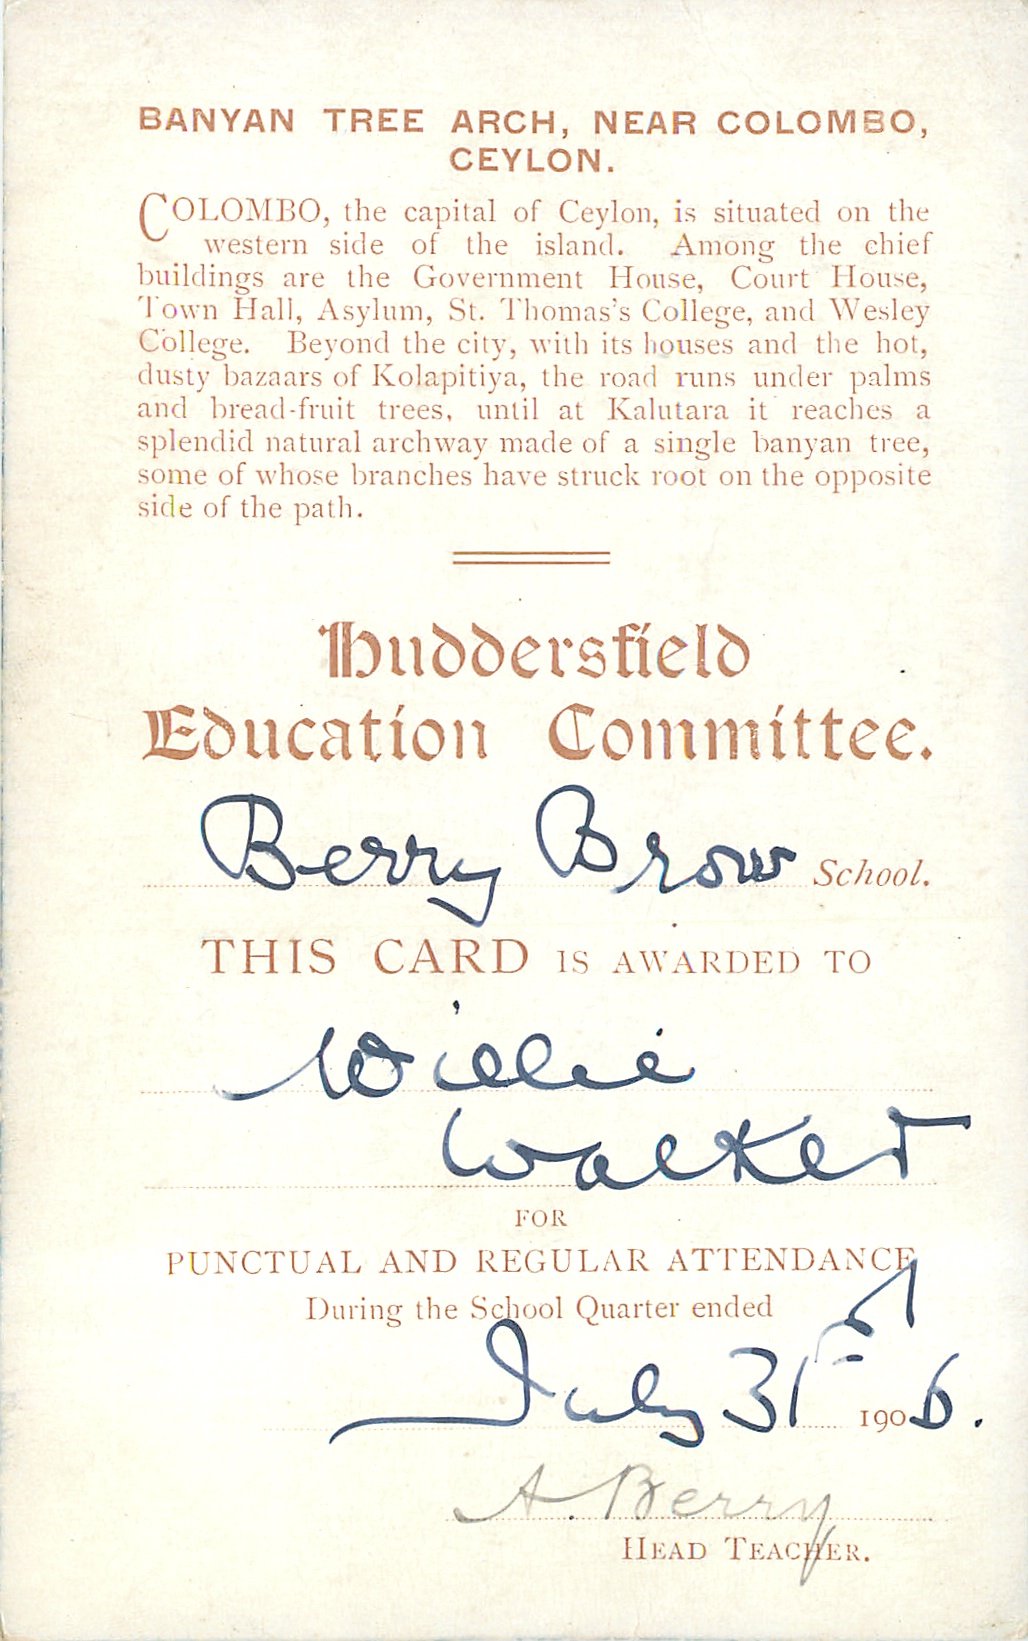 BANYAN TREE ARCH, NEAR COLOMBO,
CEYLON.
COLOMBO, the capital of Ceylon, is situated on the
western side of the island. Among the chief
buildings are the Government House, Court House,
Town Hall, Asylum, St. Thomas's College, and Wesley
College. Beyond the city, with its houses and the hot,
dusty bazaars of Kolapitiya, the road runs under palms
and bread-fruit trees, until at Kalutara it reaches a
splendid natural archway made of a single banyan tree,
some of whose branches have struck root on the opposite
side of the path.
Huddersfield
Education Committee.
Berry Brow School.
THIS CARD IS AWARDED TO
Willie
Walker
FOR
PUNCTUAL AND REGULAR ATTENDANCE
During the School Quarter ended
July 31st 1906.
A. Berry
HEAD TEACHER.